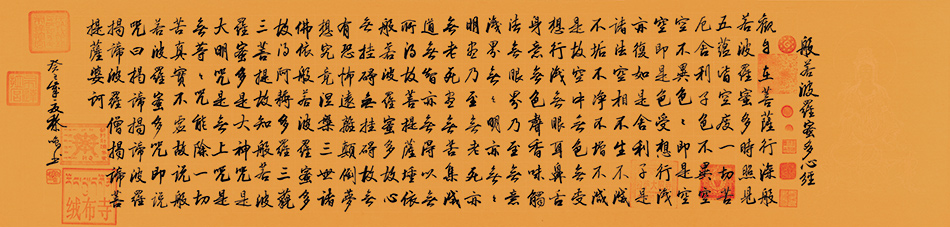 般若波羅蜜多心經
觀自在菩薩行深般
若波羅蜜多時照見
五蘊皆空度一切苦
厄舍利子色不異空
空不異色〻即是空
空即是色受想行識
亦復如是舍利子是
諸法空相不生不滅
不垢不淨不增不減
是故空中無色無受
想行識無眼耳鼻舌
身意無色聲香味觸
法無眼界乃至無意
識界無〻明亦無〻
明盡乃至無老死亦
無老死盡無苦集滅
道無智亦無得以無
所得故菩提薩埵依
般若波羅蜜多故心
無挂礙無挂礙故無
有恐怖遠離顛倒夢
想究竟涅槃三世諸
佛依般若波羅蜜多
故得阿耨多羅三藐
三菩提故知般若波
羅蜜多是大神咒是
大明咒是無上咒是
無等〻咒能除一切
苦真實不虛故說般
若波羅蜜多咒即說
咒曰揭諦揭諦波羅
揭諦波羅僧揭諦菩
提薩婆訶
绒布寺